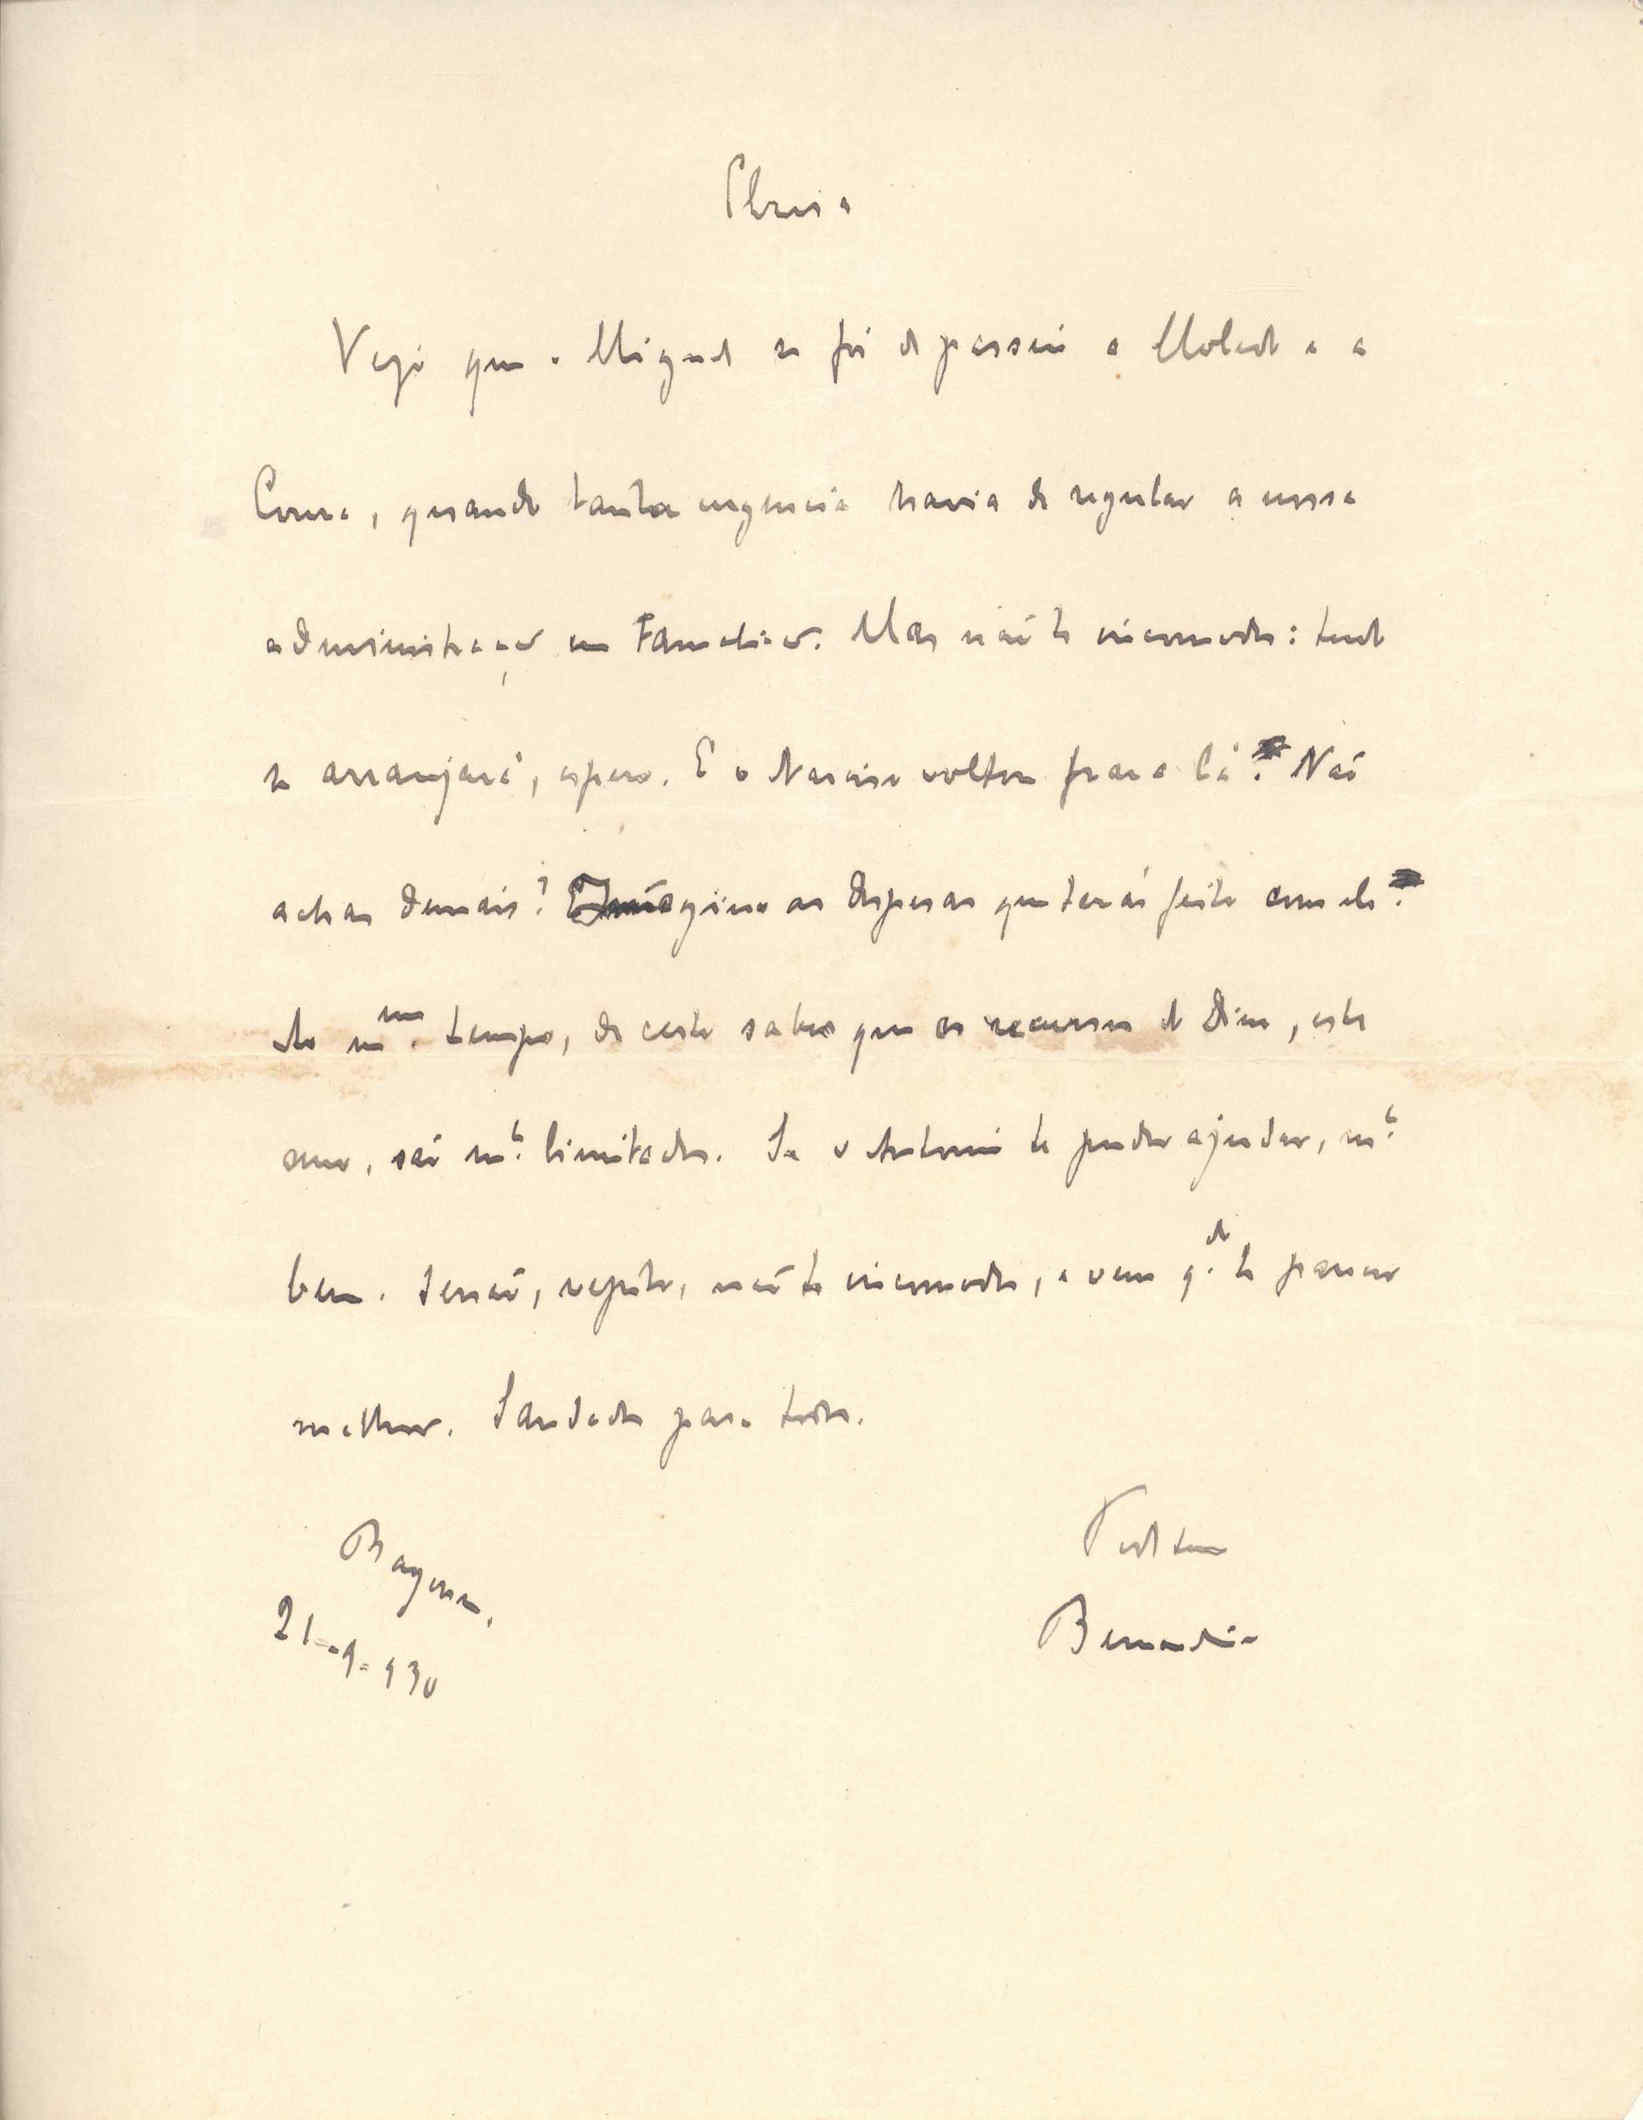 Elzira
Vejo que o Miguel se foi de passeio a Moledo e a
Coura, quando tanta urgencia havia de regular a nossa
administração em Famalicão. Mas não te incomodes: tudo
se arranjará, espero. E o Narciso voltou para lá? Não
achas demais? Imagino as despesas que terás feito com ele.
Ao m.mo tempo, de certo sabes que os recursos do Dino, este
ano, são m.to limitados. Se o Antonio te puder ajudar, m.to
bem. Senão, repito, não te incomodes, e vem q.do te parecer
melhor. Saudades para todos.
Todo teu
Bernardino
Bayona,
21-9-930